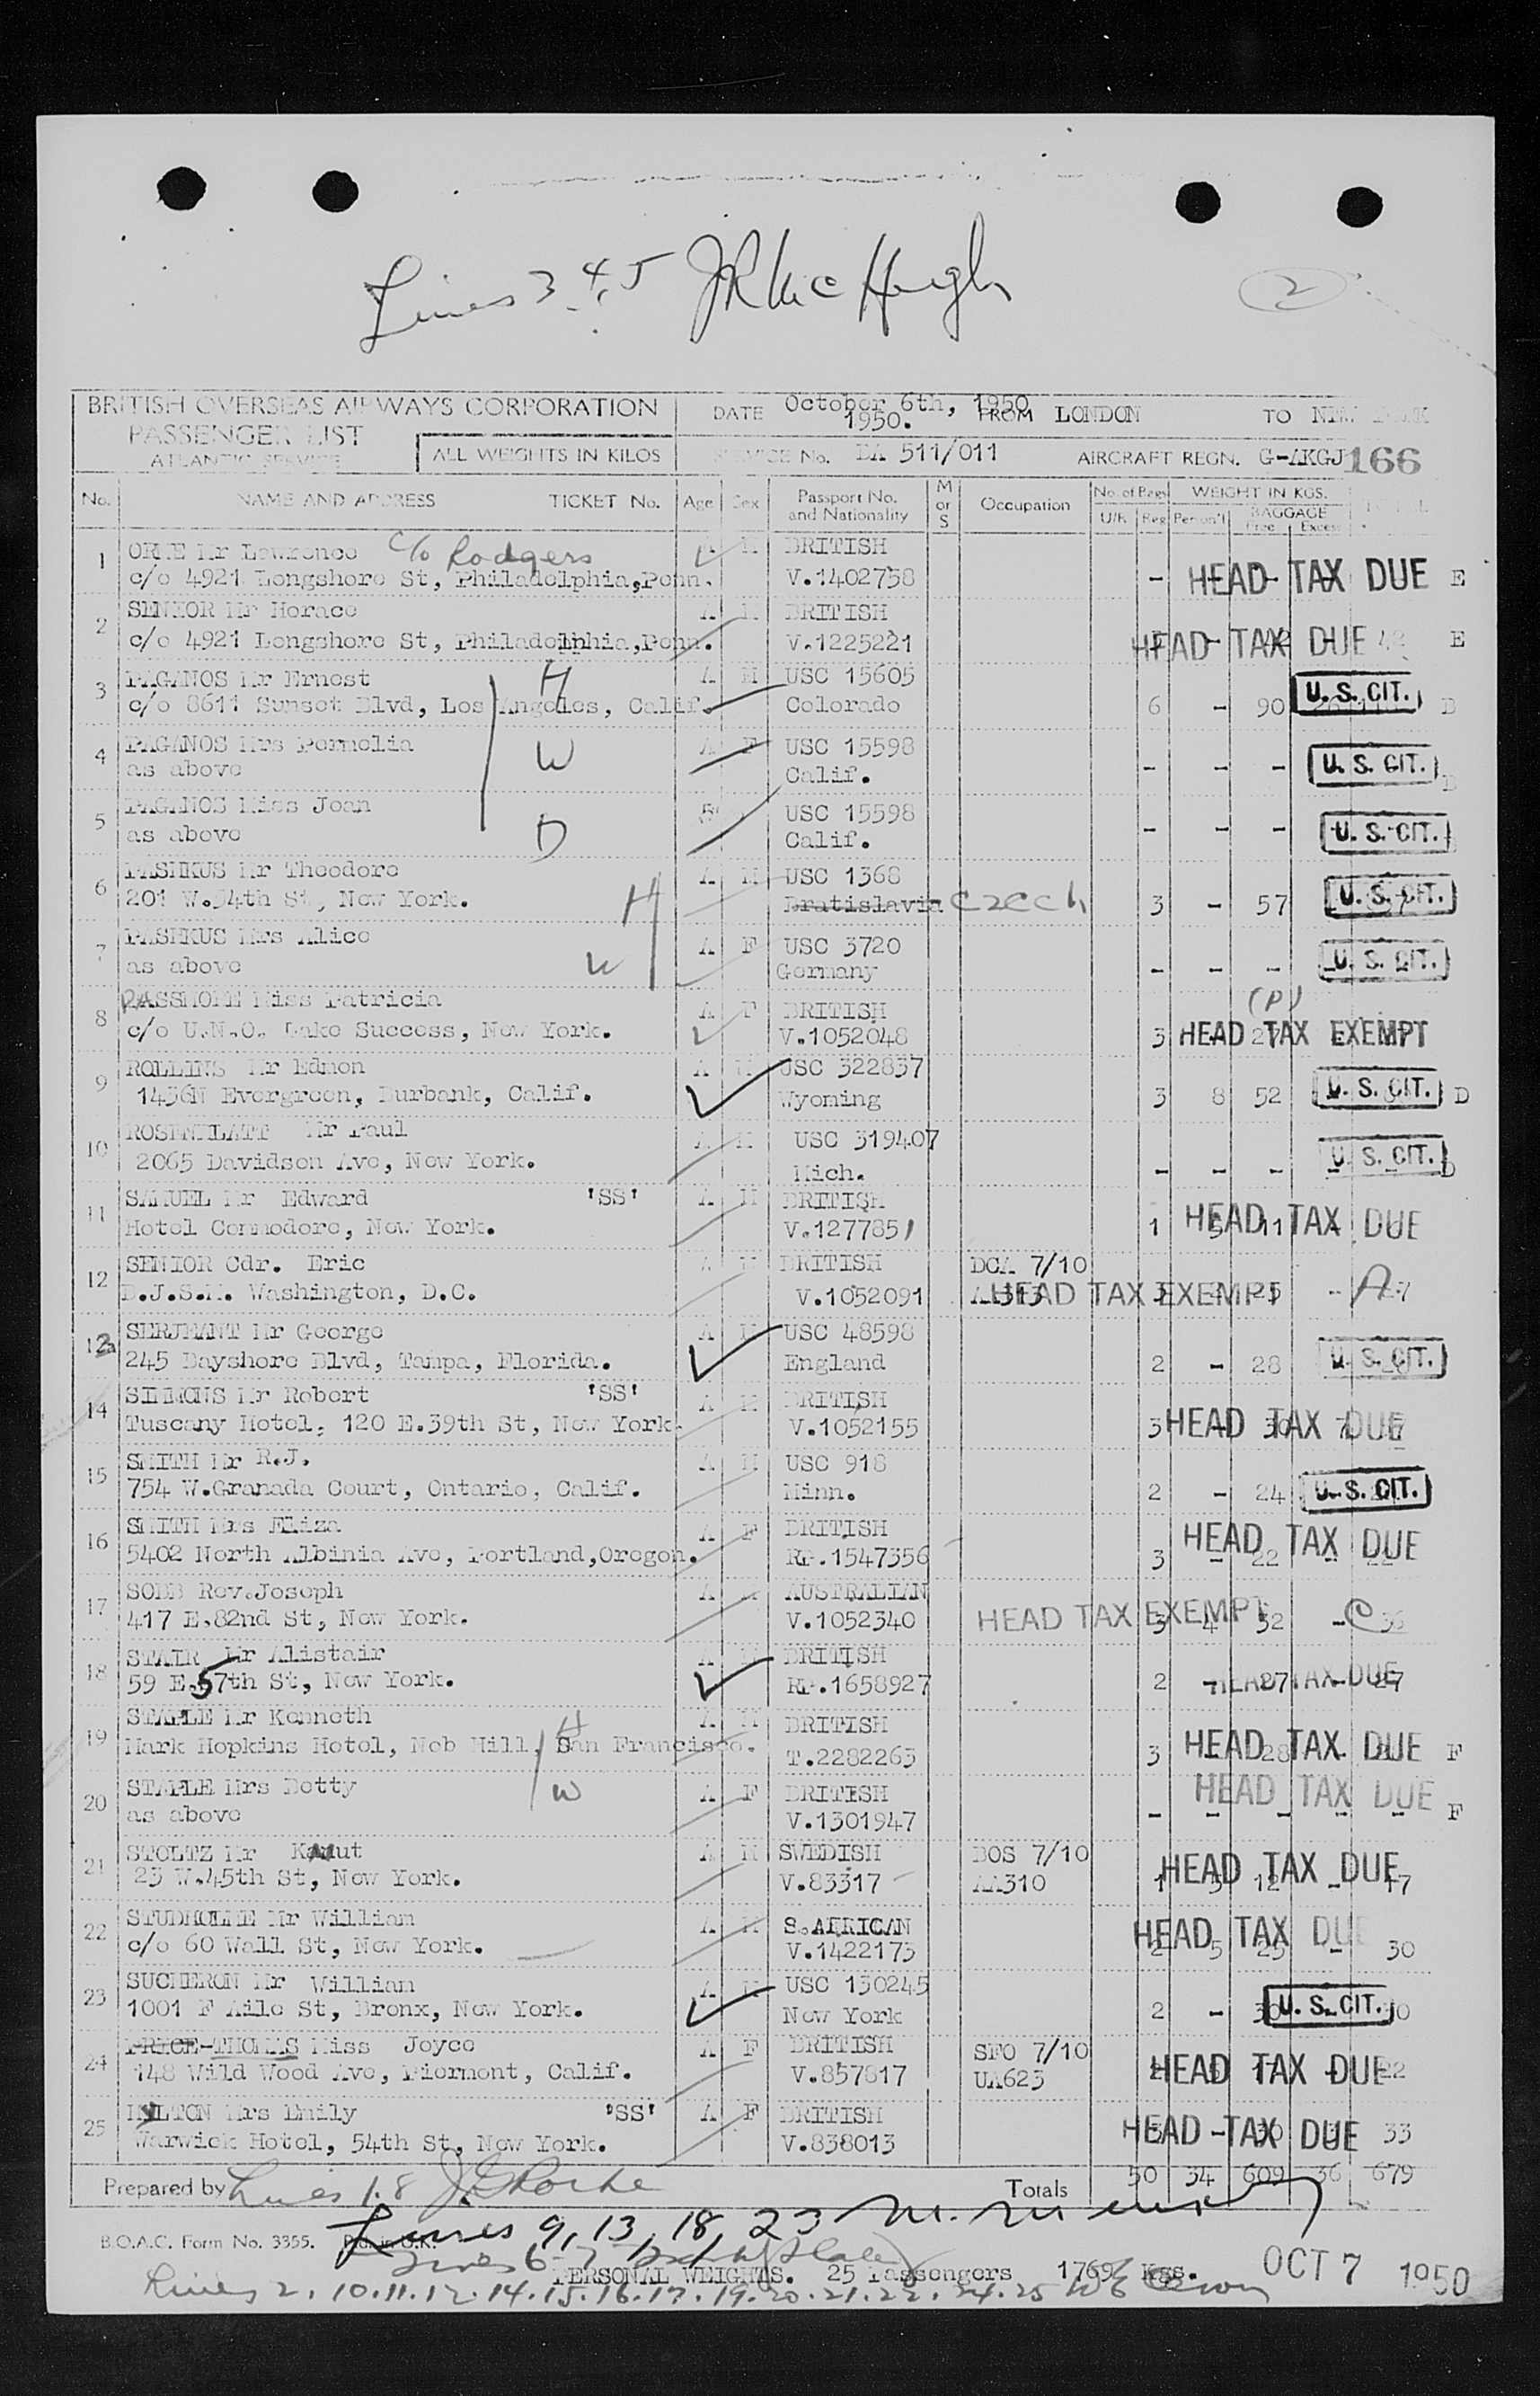 Lines 3, 4, 5 JR McHugh
2
BRITISH OVERSEAS AIRWAYS CORPORATION
PASSENGER LIST
ATLANTIC SERVICE
ALL WEIGHTS IN KILOS
DATE October 6th, 1950
1950. FROM LONDON TO NEW YORK
SERVICE No. BA 511/011 AIRCRAFT REGN. G-AKGJ 166
No. NAME AND ADDRESS TICKET No. Age Sex Passport No. and Nationality M or S Occupation No. of Bags U/R Reg WEIGHT IN KGS. Person'l BAGGAGE Free Excess TOTAL
1 Mr Lawrence c/o Rodgers A M BRITISH
c/o 4921 Longshore St, Philadelphia, Penn. V.1402758 - HEAD TAX DUE E
2 SENIOR Mr Horace A M BRITISH
c/o 4921 Longshore St, Philadelphia, Penn. V.1225221 HEAD TAX DUE 42 E
3 PAGANOS Mr Ernest H A M USC 15605
c/o 8611 Sunset Blvd, Los Angeles, Calif. Colorado 6 - 90 U. S. CIT. D
4 PAGANOS Mrs W A F USC 15598
as above Calif. - - - U. S. CIT. D
5 PAGANOS Miss Joan D USC 15598
as above Calif. - - - U. S. CIT.
6 PASHKUS Mr Theodore H A M USC 1368
201 W.54th St, New York. Bratislavia Czech 3 - 57 U. S. CIT.
7 PASHKUS Mrs Alice W A F USC 3720
as above Germany - - - U. S. CIT.
8 PASSMORE Miss Patricia A F BRITISH (P)
c/o U.N.O. Lake Success, New York. V.1052048 3 HEAD TAX EXEMPT
9 ROLLINS Mr Edmon A M USC 322837
1436N Evergreen, Burbank, Calif. Wyoming 3 8 52 U. S. CIT. D
10 ROSENBLATT Mr Paul A M USC 319407
2065 Davidson Ave, New York. Mich. - - - U. S. CIT. D
11 SAMUEL Mr Edward 'SS' A M BRITISH
Hotel Commodore, New York. V.1277851 1 5 11 HEAD TAX DUE
12 SENIOR Cdr. Eric A M BRITISH DCA 7/10
B.J.S.M. Washington, D.C. V.1052091 AA313 HEAD TAX EXEMPT 25 - A 27
13 SERJEANT Mr George A M USC 48598
245 Bayshore Blvd, Tampa, Florida. England 2 - 28 U. S. CIT.
14 SIMMONS Mr Robert 'SS' A M BRITISH
Tuscany Hotel, 120 E.39th St, New York. V.1052155 3 HEAD TAX DUE 30 7
15 SMITH Mr R.J. A M USC 918
754 W.Granada Court, Ontario, Calif. Minn. 2 - 24 U. S. CIT.
16 SMITH Mrs Eliza A F BRITISH
5402 North Albinia Ave, Portland, Oregon. RP.1547356 3 - 22 - 22 HEAD TAX DUE
17 Rev.Joseph A M AUSTRALIAN
417 E.82nd St, New York. V.1052340 HEAD TAX EXEMPT 3 4 32 - C 36
18 STAIR Mr Alistair A M BRITISH
59 E.57th St, New York. RP.1658927 2 - 27 - 27 HEAD TAX DUE
19 STAPLE Mr Kenneth H A M BRITISH
Mark Hopkins Hotel, Nob Hill, San Francisco. T.2282263 3 - 28 - HEAD TAX DUE F
20 STAPLE Mrs Betty W A F BRITISH HEAD TAX DUE
as above V.1301947 - - - - - F
21 STOLTZ Mr A M SWEDISH BOS 7/10
23 W.45th St, New York. V.83317 AA310 1 5 12 - 17 HEAD TAX DUE
22 STUDHOLME Mr William A M S.AFRICAN
c/o 60 Wall St, New York. V.1422173 2 5 25 - 30 HEAD TAX DUE
23 SUCHERON Mr William A M USC 130245
1001 F Aile St, Bronx, New York. New York 2 - 30 U. S. CIT. 30
24 PRICE-THOMAS Miss Joyce A F BRITISH SFO 7/10
148 Wild Wood Ave, Piermont, Calif. V.857817 UA623 HEAD TAX DUE 22
25 Mrs Emily 'SS' A F BRITISH
Warwick Hotel, 54th St, New York. V.838013 HEAD TAX DUE 33
Prepared by Lines 1.8 Totals 50 34 609 36 679
Lines 9, 13, 18, 23
B.O.A.C. Form No. 3355. Ptd. in U.K.
Lines 6-7
PERSONAL WEIGHTS. 25 Passengers 1769 Kgs. OCT 7 1950
Lines 2. 10. 11. 12. 14. 15. 16. 17. 19. 20. 21. 22. 24. 25